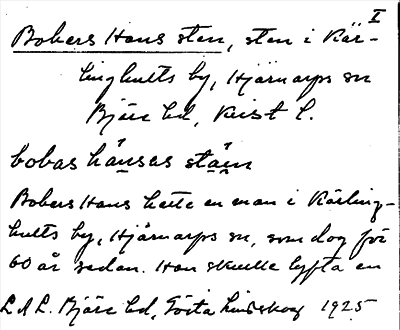 I
Bokers Hans sten, sten i Kär-
linghults by, Hjärnarps sn
Bjäre hd, Krist l.
bobas hänses stäin
Bokers Hans hette en man i Kärling-
hults by, Hjärnarps sn, som dog för
60 år sedan. Han skulle lyfta en
L.A.L. Bjäre hd, Gösta Lindskog 1925